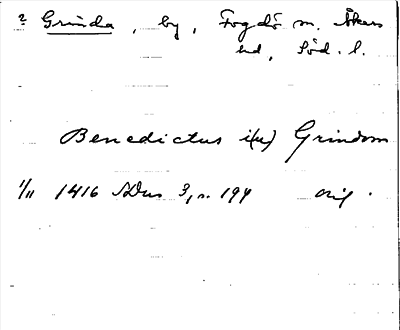 ? Grinda, by, Fogdö sn. Åkers
hd, Söd. l.
Benedictus i(n) Grindom
1/11 1416 SDns 3, s. 194 orig.